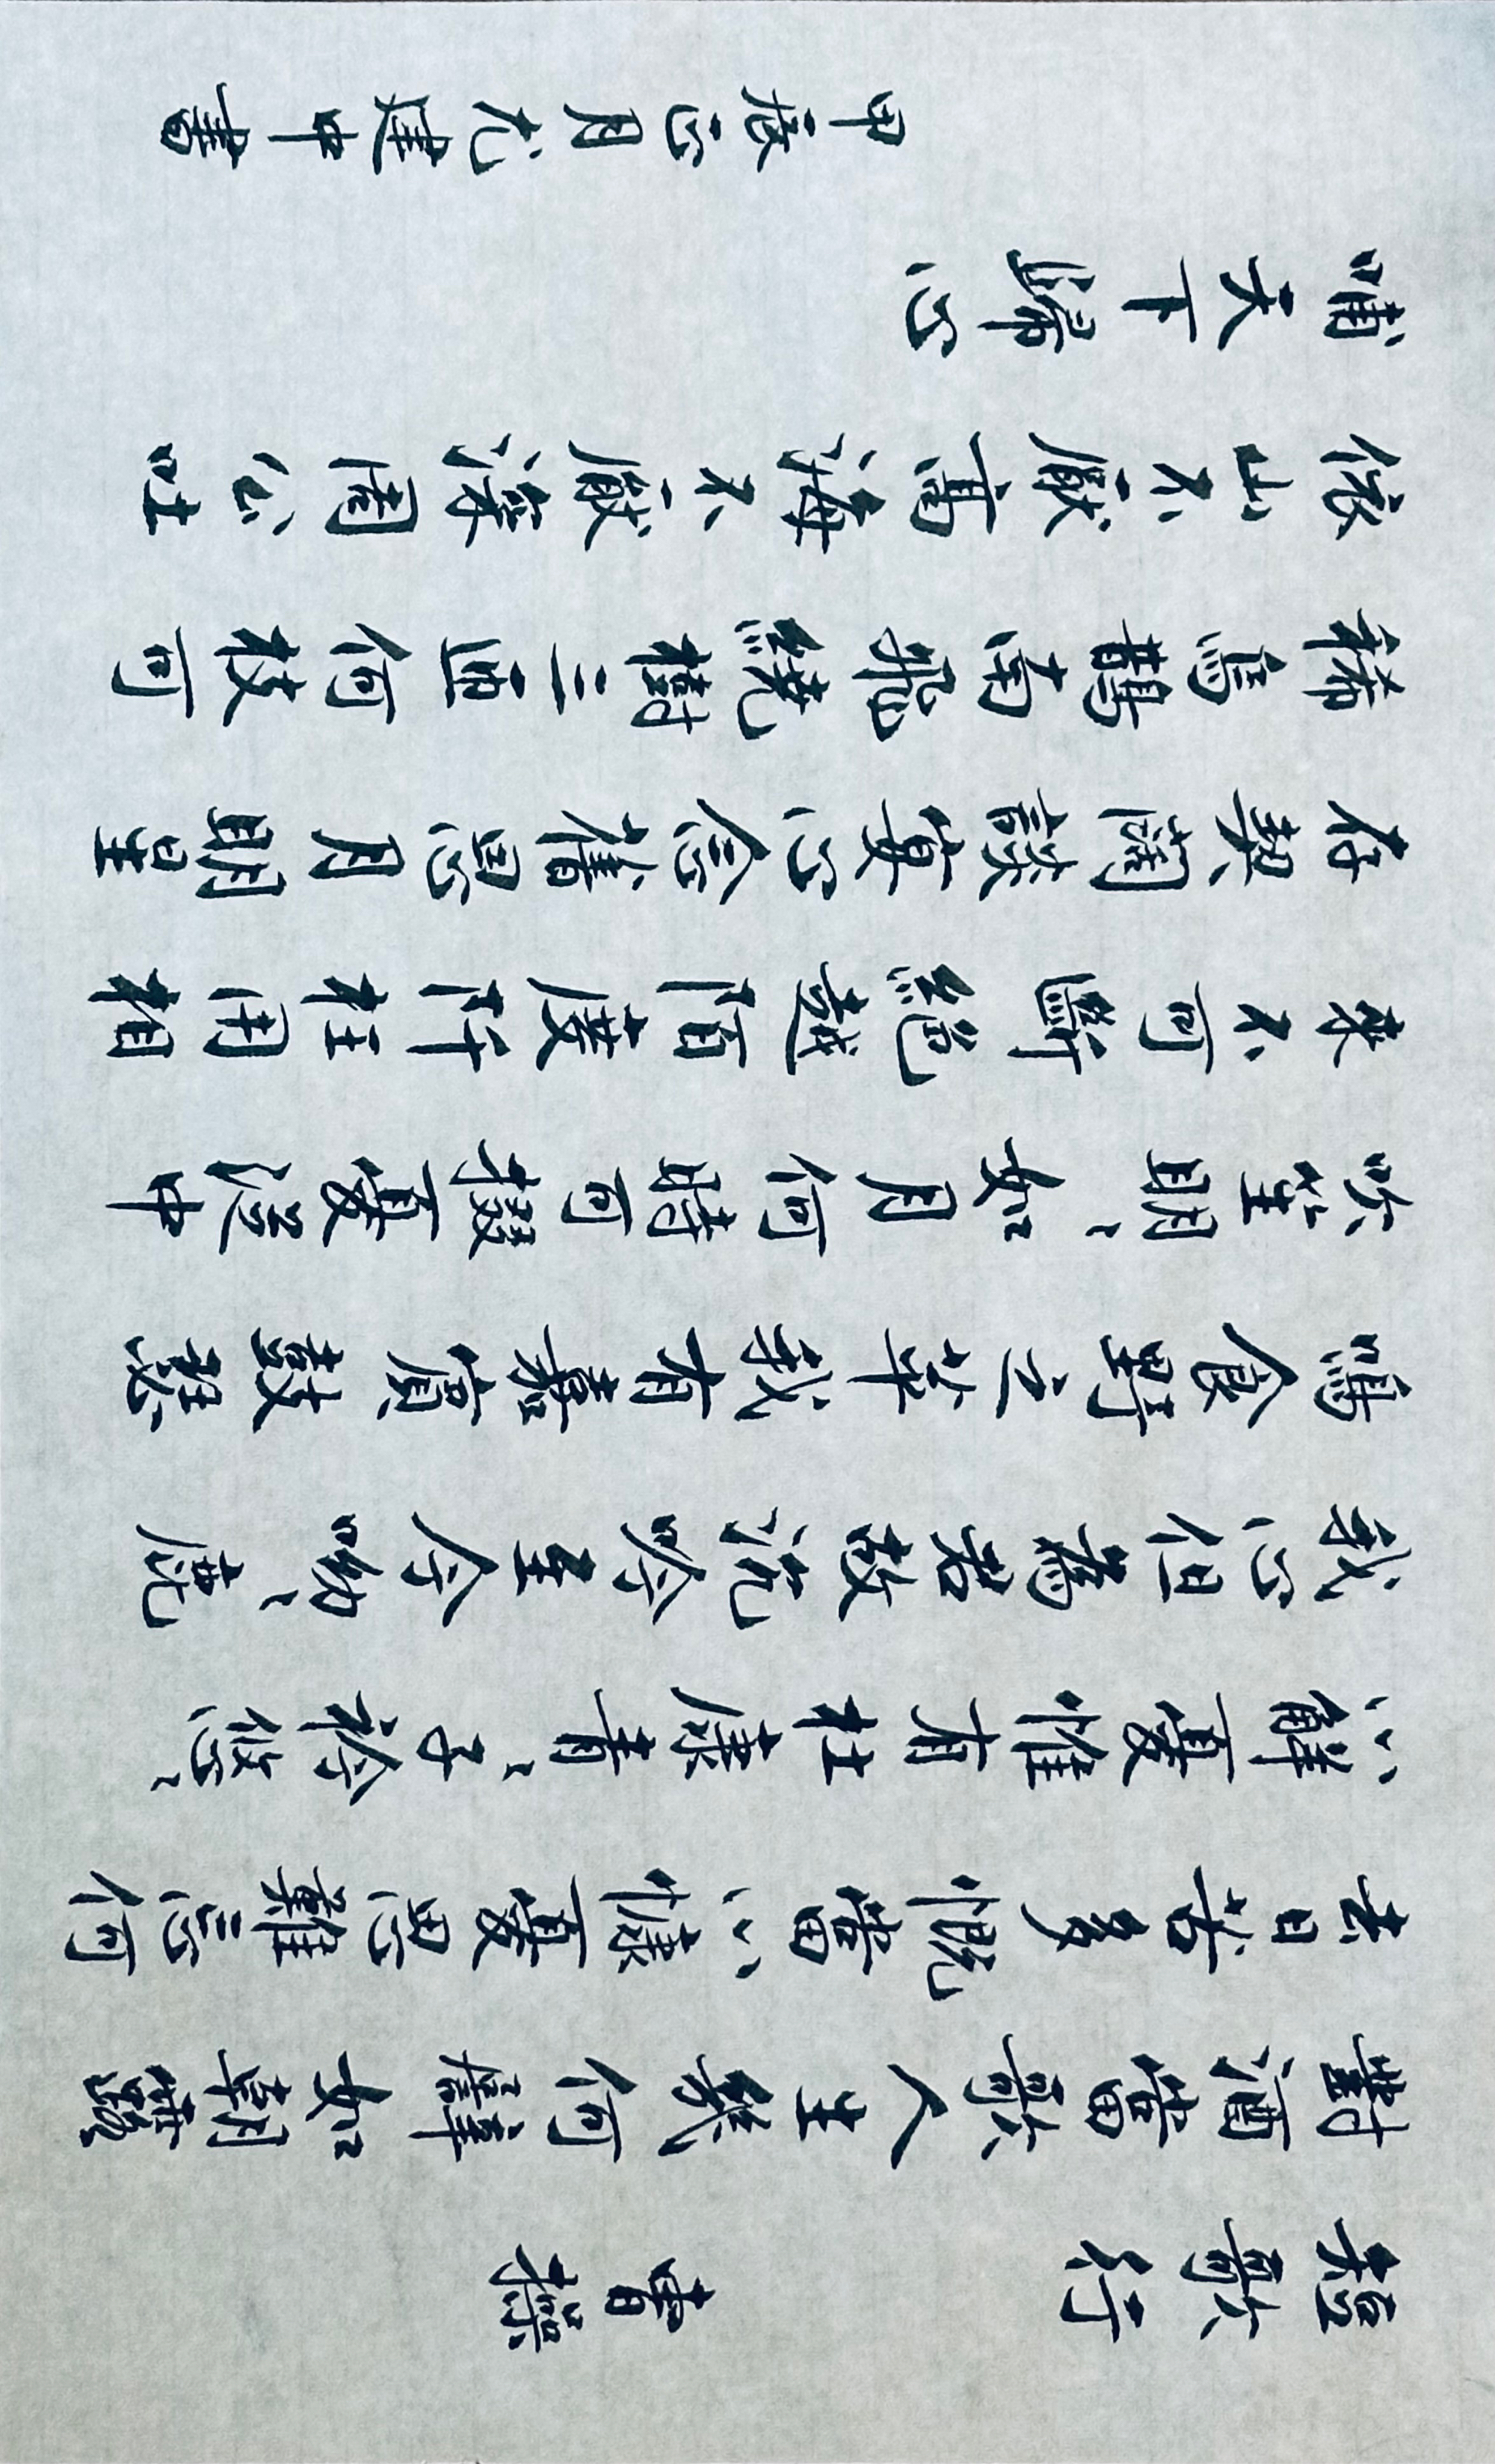 短歌行 曹操
對酒當歌人生幾何譬如朝露
去日苦多慨當以慷憂思難忘何
以解憂惟有杜康青〻子衿悠〻
我心但爲君故沉吟至今呦〻鹿
鳴食野之苹我有嘉賓鼓瑟
吹笙明〻如月何時可掇憂從中
來不可斷絕越陌度阡枉用相
存契闊談宴心念舊恩月明星
稀烏鵲南飛繞樹三匝何枝可
依山不厭高海不厭深周公吐
哺天下歸心
甲辰 月 建中書